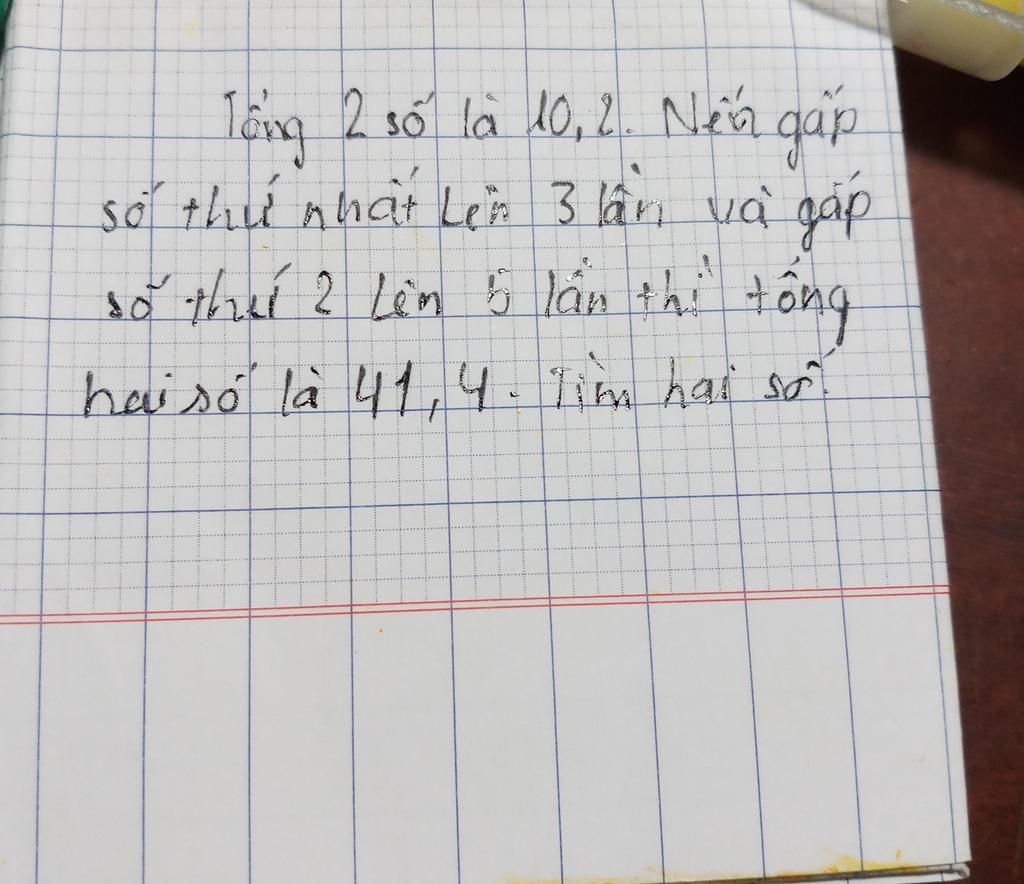 Tổng 2 số là 10,2. Nếu gấp
số thứ nhất Lên 3 lần và gấp
số thứ 2 Lên 5 lần thì tổng
hai số là 41,4. Tìm hai số.